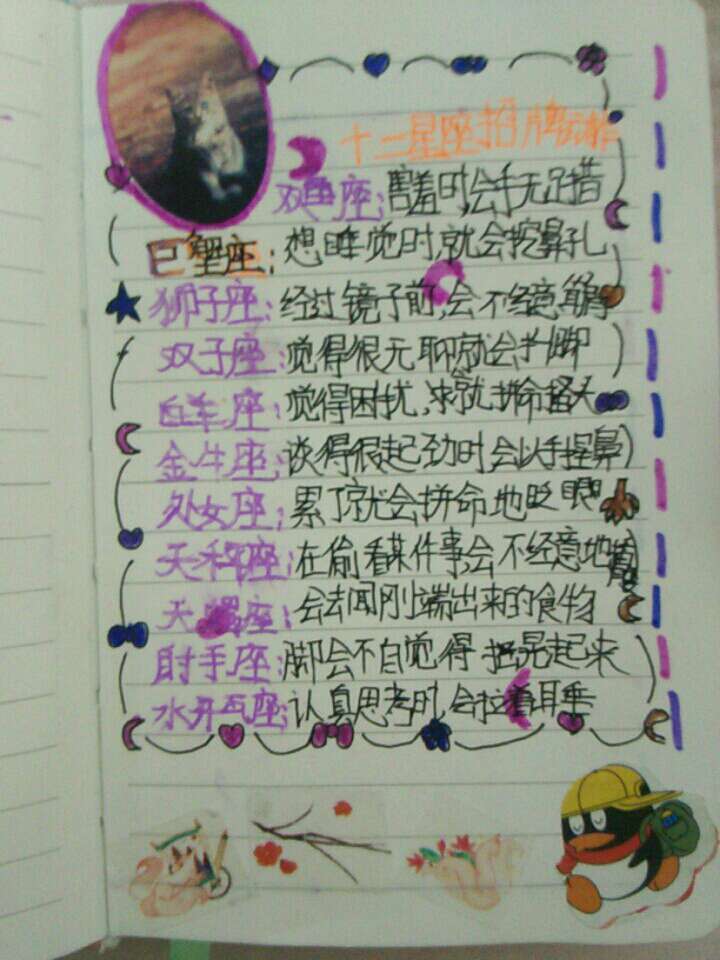 十二星座招牌动作
双鱼座:害羞时,会手无足措
巨蟹座:想睡觉时,就会挖鼻孔
狮子座:经过镜子前,会不经意
双子座:觉得很无聊就会抖脚
白羊座:觉得困扰,就拼命搔头
金牛座:谈得很起劲时会以手捏鼻
处女座:累了就会拼命地眨眼
天秤座:在偷看某件事会不经意地
天蝎座:会去闻刚端出来的食物
射手座:脚会不自觉得 晃起来
水平瓦座:认真思考时,会拉着耳垂